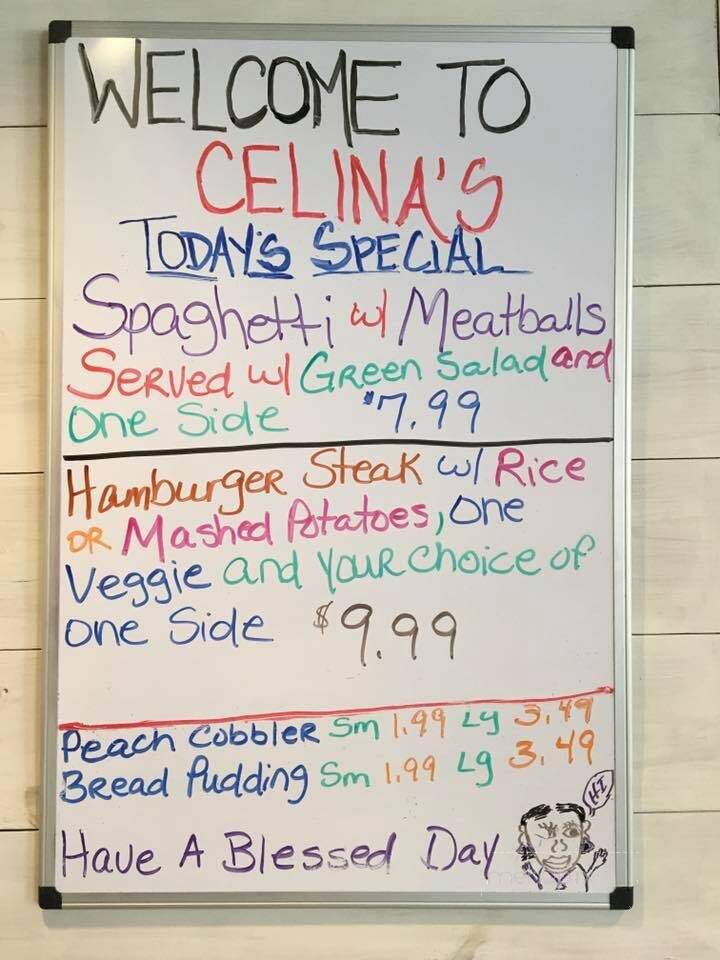 WELCOME TO
CELINA'S
TODAY'S SPECIAL
Spaghetti w/ Meatballs
Served w/ Green Salad and
One Side $7.99
Hamburger Steak w/ Rice
OR Mashed Potatoes, One
Veggie and Your Choice of
One Side $9.99
Peach Cobbler Sm 1.99 Lg 3.49
Bread Pudding Sm 1.99 Lg 3.49
HI
Have A Blessed Day